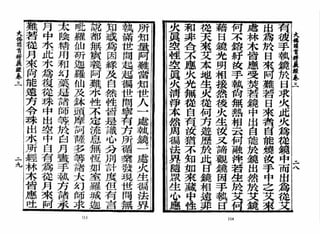 大佛頂首楞嚴經卷三
二八
有彼手執鏡於日求火此火為從鏡中而出為從艾
出為於日來阿難若日來者自能燒汝手中之艾來
處林木皆應受焚若鏡中出自能於鏡出然于艾鏡
何不鎔紆汝手執尚無熱相云何融泮若生於艾何
藉日鏡光明相接然後火生汝又諦觀鏡因手執日
從天來艾本地生火從何方遊歷於此日鏡相遠非
和非合不應火光無從自有汝猶不知如來藏中性
火眞空性空眞火清淨本然周徧法界隨眾生心應
所知量阿難當知世人一處執鏡一處火生徧法界
執滿世間起起徧世間寧有方所循業發現世間無
知惑為因緣及自然性皆是識心分別計度但有言
說都無實義阿難水性不定流息無恆如室羅城迦
毗羅仙斫迦羅仙及鉢頭摩訶薩多等諸大幻師求
太陰精用和幻藥是諸師等於白月晝手執方諸承
月中水此水為復從珠中出空中自有為從月來阿
難若從月來尚能遠方令珠出水所經林木皆應吐
大佛頂首楞嚴經卷三
二九